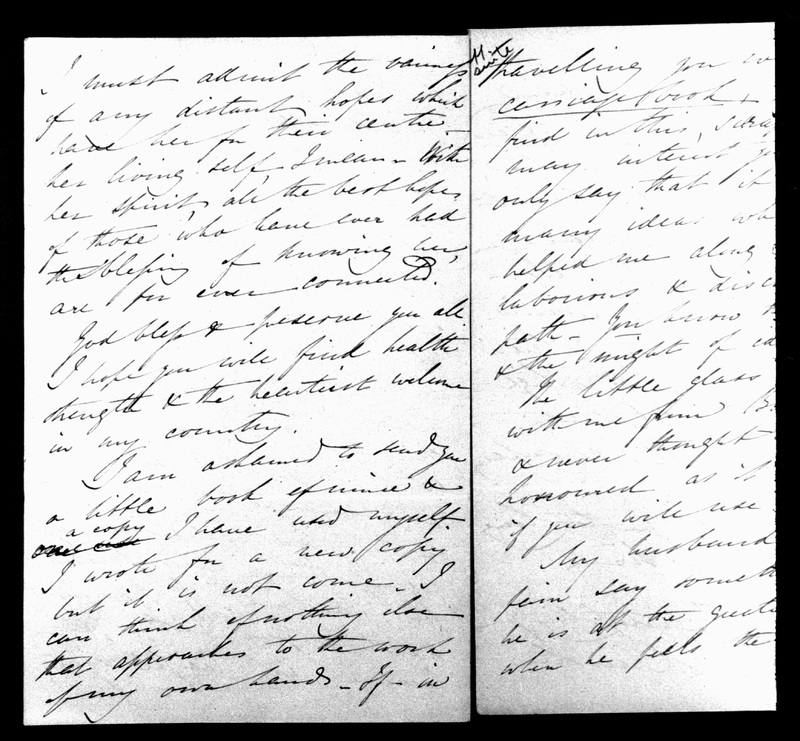 I must admit the
of any distant hopes which
have her for their centre -
her living self, I mean - With
her spirit, all the best hopes
of those who have ever had
the blessing of knowing her,
are for ever connected.
God bless & preserve you all.
I hope you will find health
strength & the heartiest welcome
in my country.
I am ashamed to send you
a little book of mine &
a copy I have used myself
I wrote for a new copy
but it is not come - I
can think of nothing else
that approaches to the work
of my own hands - If - in
travelling you
carriage book
find in this,
may interest
only say that it
many ideas
helped me along
laborious &
path - You know
& the might of
The little glass
with me from
& never thought
honoured as
if you will use
My husband
say
he is at the
when he feels the